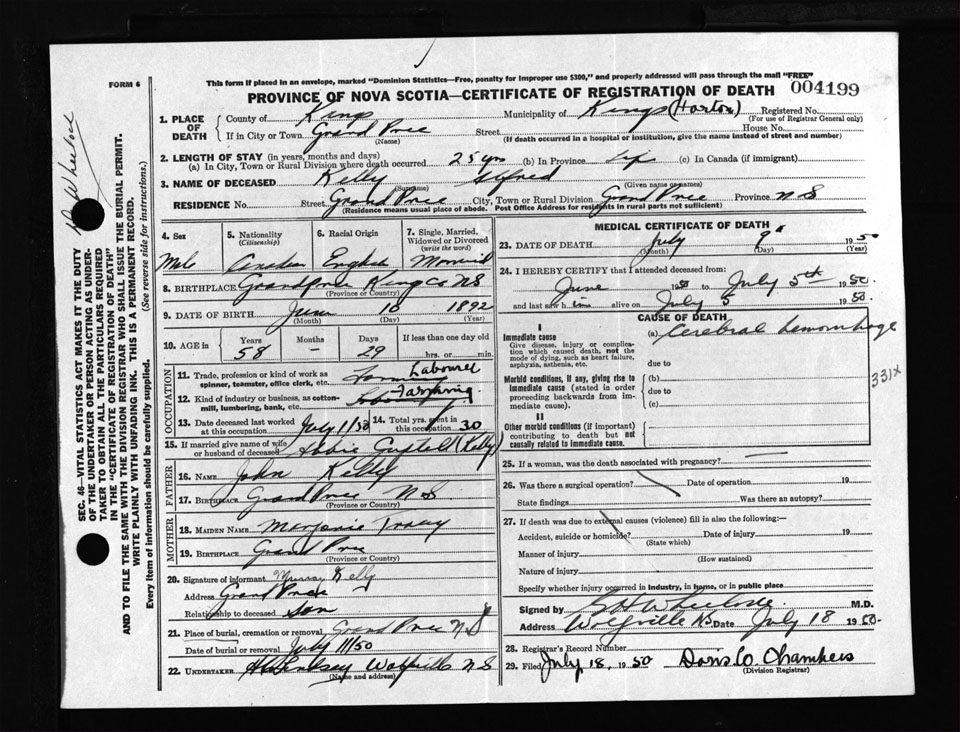 FORM 6
This form if placed in an envelope, marked "Dominion Statistics—Free, penalty for improper use $300," and properly addressed will pass through the mail "FREE"
PROVINCE OF NOVA SCOTIA—CERTIFICATE OF REGISTRATION OF DEATH 004199
1. PLACE OF DEATH
County of Kings Municipality of Kings (Horton) Registered No.
(For use of Registrar General only)
If in City or Town Grand Pree Street House No.
(Name) (If death occurred in a hospital or institution, give the name instead of street and number)
2. LENGTH OF STAY (in years, months and days)
(a) In City, Town or Rural Division where death occurred 25 yrs (b) In Province Life (c) In Canada (if immigrant)
3. NAME OF DECEASED Kelly Alfred
(Surname) (Given name or names)
RESIDENCE No. Street Grand Pree City, Town or Rural Division Grand Pree Province N.S
(Residence means usual place of abode. Post Office Address for residents in rural parts not sufficient)
4. Sex 5. Nationality (Citizenship) 6. Racial Origin 7. Single, Married, Widowed or Divorced (write the word)
Male Canadian English Married
8. BIRTHPLACE Grandpree Kings Co NS
(Province or Country)
9. DATE OF BIRTH June 10 1892
(Month) (Day) (Year)
10. AGE in Years Months Days If less than one day
58 – 29 hrs. or min.
OCCUPATION
11. Trade, profession or kind of work as spinner, teamster, office clerk, etc. Farm Labourer
12. Kind of industry or business, as cotton-mill, lumbering, bank, etc. Farming
13. Date deceased last worked at this occupation July 1/50 14. Total yrs. spent in this occupation 30
15. If married give name of wife or husband of deceased Abbie (Kelly)
FATHER
16. NAME John Kelly
17. BIRTHPLACE Grand Pree N.S
(Province or Country)
MOTHER
18. MAIDEN NAME Marjorie Tracy
19. BIRTHPLACE Grand Pree
(Province or Country)
20. Signature of informant Murray Kelly
Address Grand Pree
Relationship to deceased Son
21. Place of burial, cremation or removal Grand Pree N.S
Date of burial or removal July 11/50
22. UNDERTAKER Lindsay Wolfville N.S
(Name and address)
MEDICAL CERTIFICATE OF DEATH
23. DATE OF DEATH July 9 1950
(Month) (Day) (Year)
24. I HEREBY CERTIFY that I attended deceased from:
June 1950 to July 5th 1950
and last saw him alive on July 5 1950.
CAUSE OF DEATH
I
Immediate cause (a) Cerebral hemorrhage
Give disease, injury or complication which caused death, not the mode of dying, such as heart failure, asphyxia, asthenia, etc.
due to
Morbid conditions, if any, giving rise to immediate cause (stated in order proceeding backwards from immediate cause).
(b)
due to
(c)
331x
II
Other morbid conditions (if important) contributing to death but not causally related to immediate cause.
25. If a woman, was the death associated with pregnancy?
26. Was there a surgical operation? Date of operation 19
State findings Was there an autopsy?
27. If death was due to external causes (violence) fill in also the following:—
Accident, suicide or homicide? Date of injury 19
(State which)
Manner of injury
(How sustained)
Nature of injury
Specify whether injury occurred in industry, in home, or in public place
Signed by M.D.
Address Wolfville NS Date July 18 1950.
28. Registrar's Record Number
29. Filed July 18, 1950 Doris O. Chambers
(Division Registrar)
SEC. 46—VITAL STATISTICS ACT MAKES IT THE DUTY
OF THE UNDERTAKER OR PERSON ACTING AS UNDERTAKER TO OBTAIN ALL THE PARTICULARS REQUIRED
IN THE "CERTIFICATE OF REGISTRATION OF DEATH"
AND TO FILE THE SAME WITH THE DIVISION REGISTRAR WHO SHALL ISSUE THE BURIAL PERMIT.
WRITE PLAINLY WITH UNFADING INK. THIS IS A PERMANENT RECORD.
Every item of information should be carefully supplied. (See reverse side for instructions.)